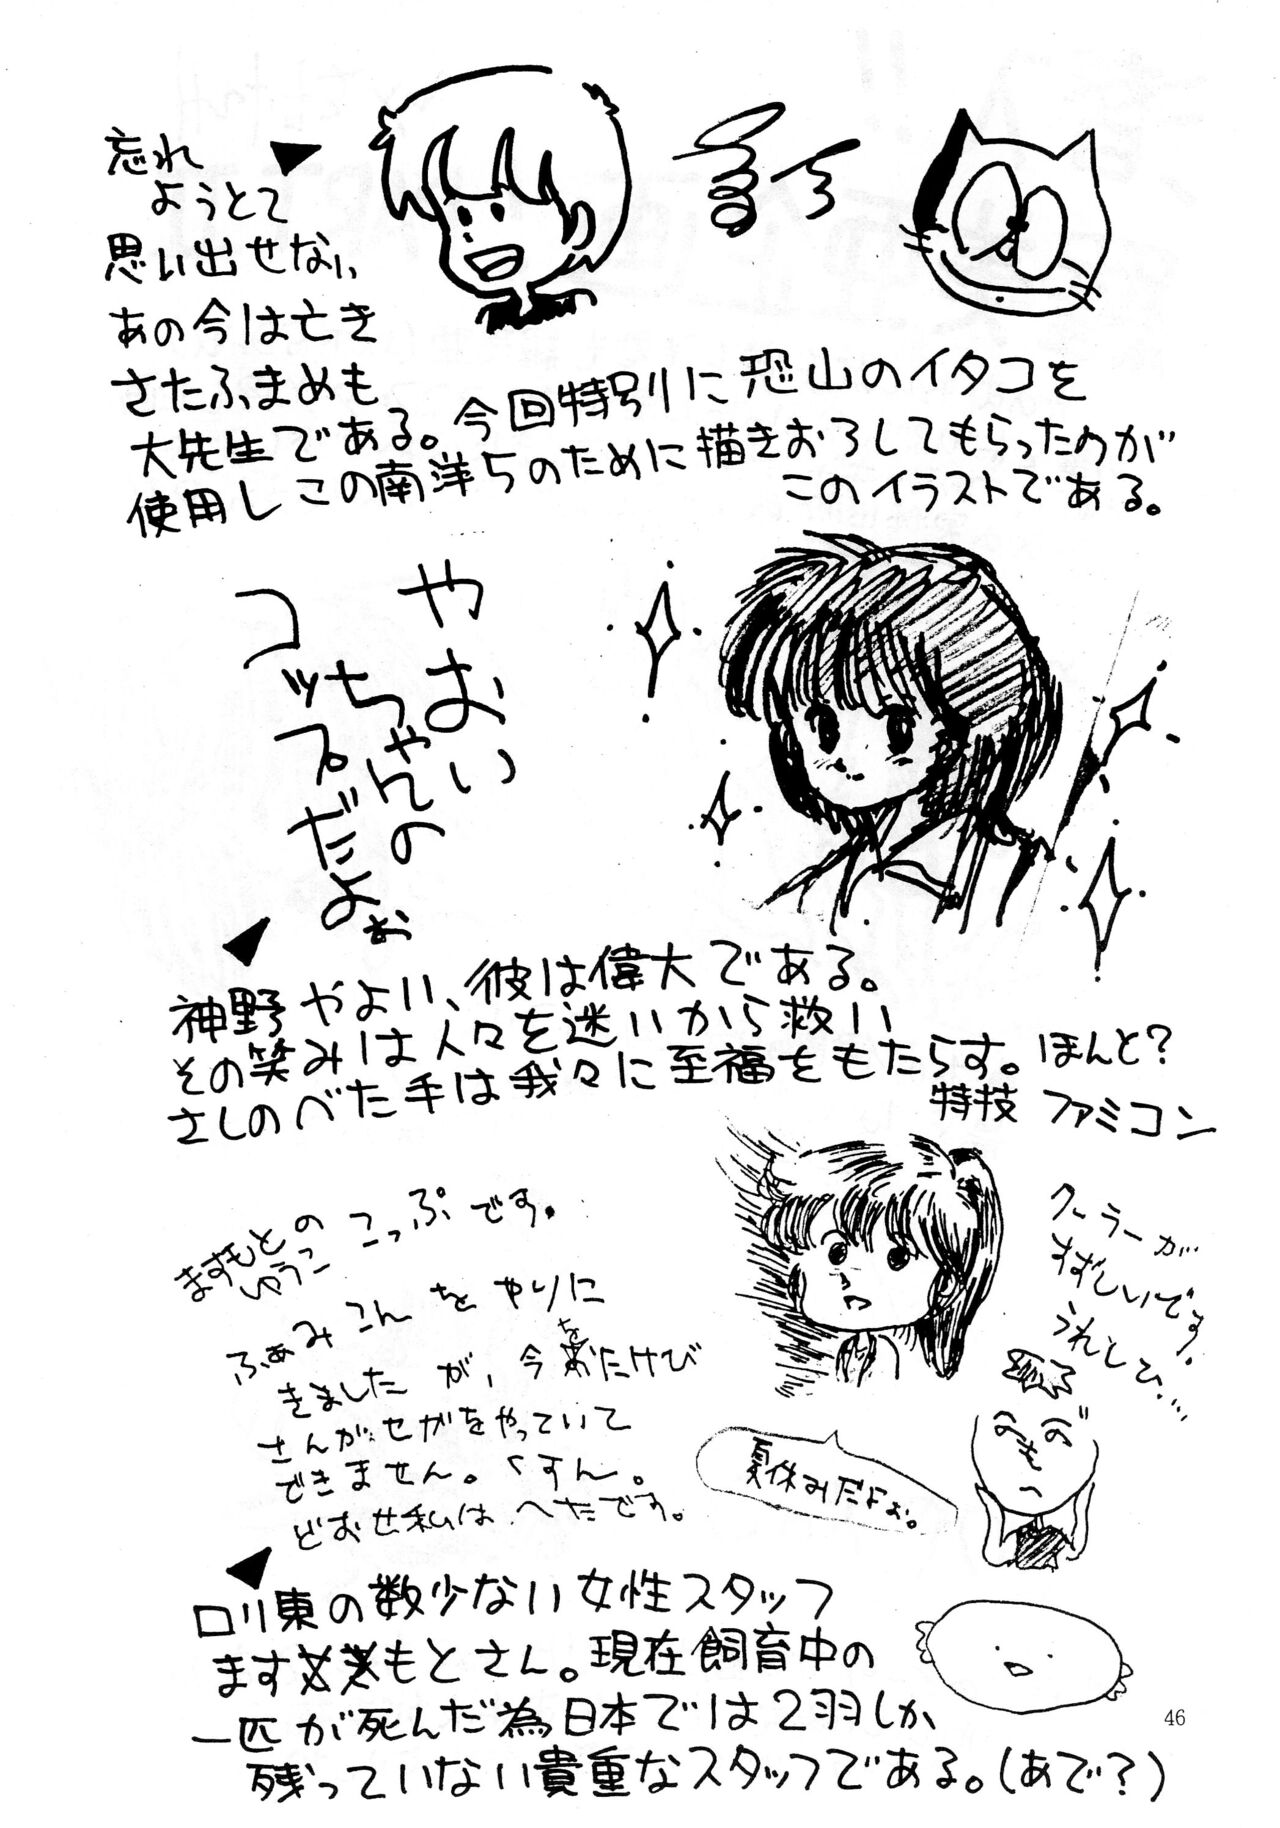 忘れ
ようとて
思い出せない
あの今は亡き
さたふまめも
大先生である。今回特別に恐山のイタコを
使用しこの南洋5のために描きおろしてもらったのが
このイラストである。
やおい
ちゃんの
コップだよぉ
神野やよい、彼は偉大である。
その笑みは人々を迷いから救い
さしのべた手は我々に至福をもたらす。ほんと?
特技 ファミコン
ますもと
ゆうこ
の こっぷです。
ふぁみこんをやりに
きましたが、今をおたけび
さんがセガをやっていて
できません。くすん。
どおせ私はへたです。
クーラーが
すずしいです。
うれしひ…
夏休みだよぉ。
へのへの
もへ
ロリ東の数少ない女性スタッフ
ますもとさん。現在飼育中の
一匹が死んだ為日本では2羽しか
残っていない貴重なスタッフである。(あで?)
46